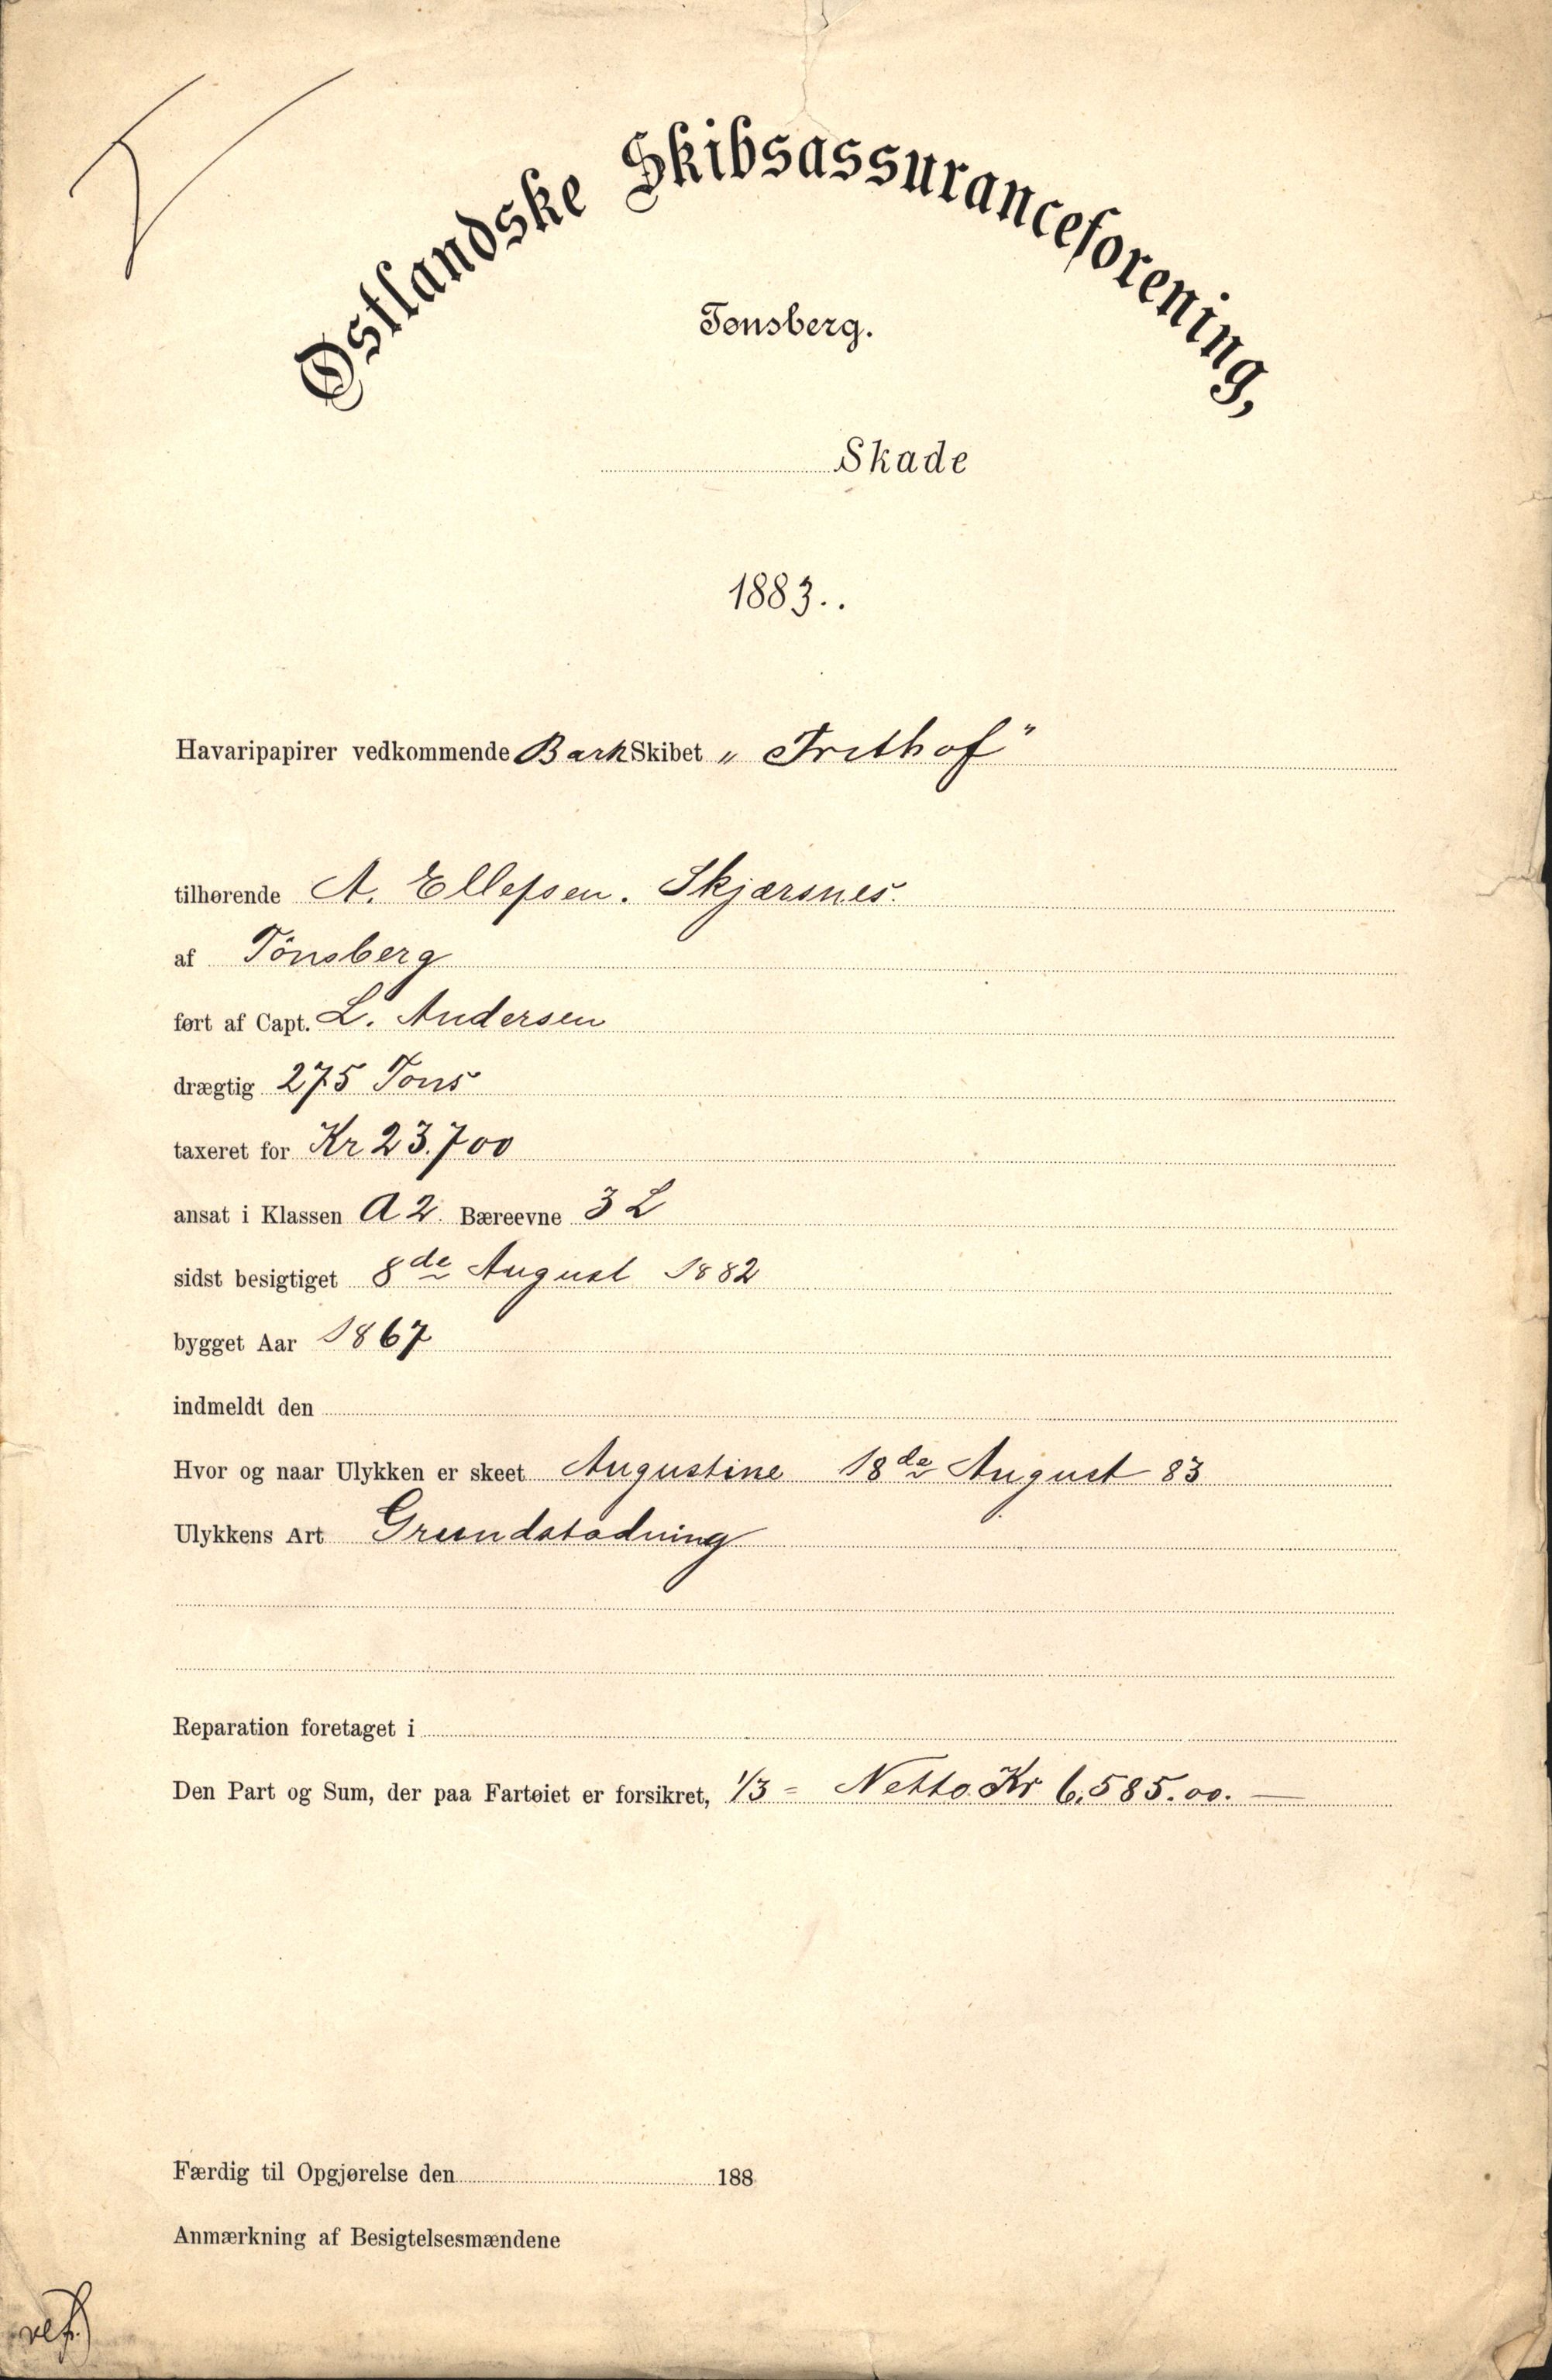 Østlandske Skibsassuranceforening,
Tønsberg.
Skade
1883..
Havaripapirer vedkommende Bark Skibet „Frithof"
tilhørende A. Ellefsen. Skjærsnes.
af Tönsberg
ført af Capt. L. Andersen
drægtig 275 Tons
taxeret for Kr 23.700
ansat i Klassen A 2. Bæreevne 3 L
sidst besigtiget 8de August 1882
bygget Aar 1867
indmeldt den
Hvor og naar Ulykken er skeet Augustine 18de August 83
Ulykkens Art Grundstødning
Reparation foretaget i
Den Part og Sum, der paa Fartøiet er forsikret, 1/3 = Netto Kr 6,585.00.—
Færdig til Opgjørelse den 188
Anmærkning af Besigtelsesmændene